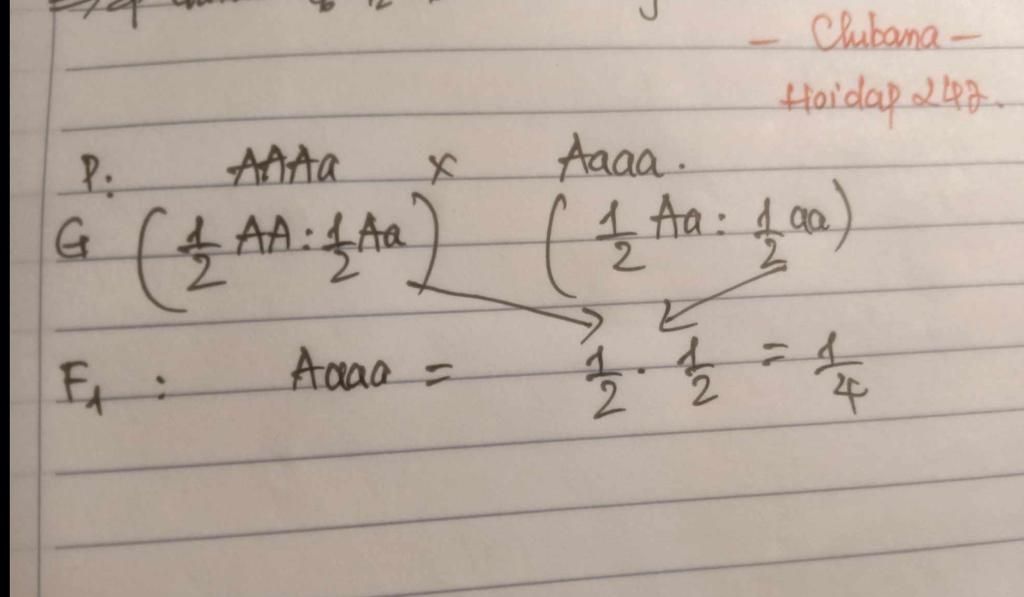 - Chibana -
Hoidap 247.
P: AAAa x Aaaa.
G (1/2 AA : 1/2 Aa) (1/2 Aa : 1/2 aa)
F1 : Aaaa = 1/2 . 1/2 = 1/4